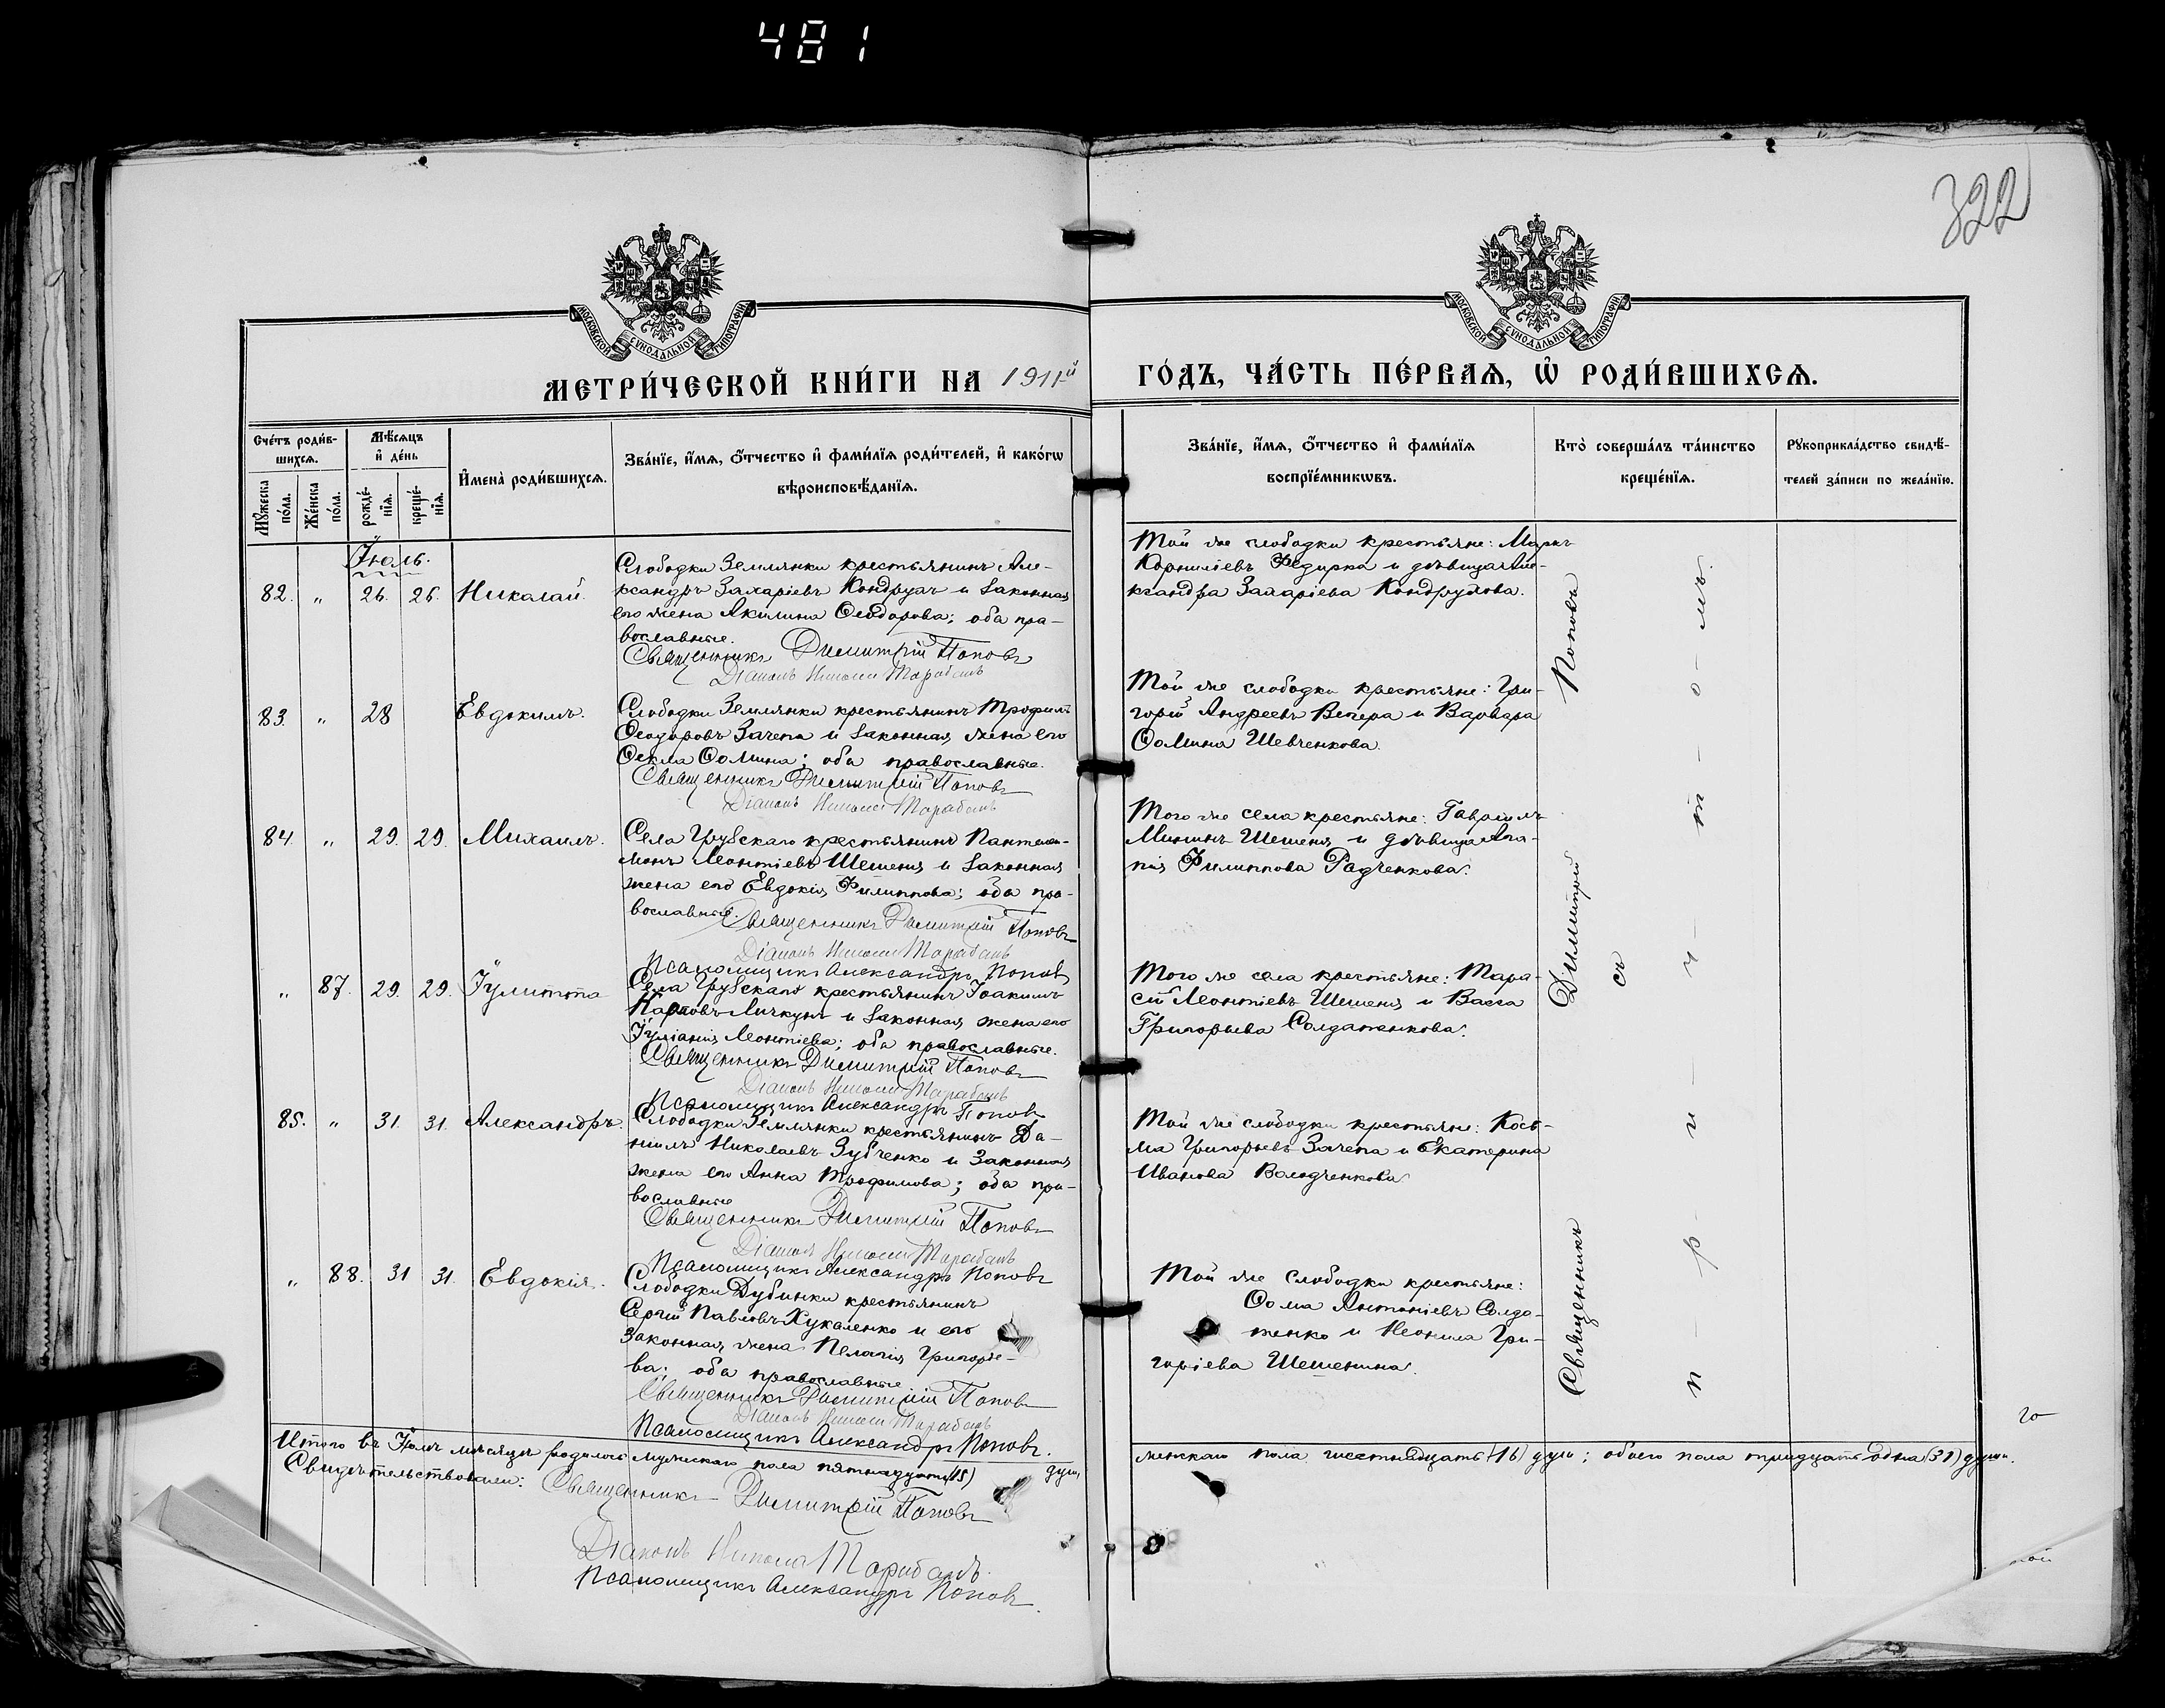 481
322
МОСКОВСКОЙ СѴНОДАЛЬНОЙ ТИПОГРАФІИ
МОСКОВСКОЙ СѴНОДАЛЬНОЙ ТИПОГРАФІИ
МЕТРИ́ЧЕСКОЙ КНИ́ГИ НА 1911й
ГО́ДЪ, ЧА́СТЬ ПЕ́РВАѦ, Ѡ҆ РОДИ́ВШИХСѦ.
Сче́тъ роди́в-
шихсѧ.
Мꙋ́жеска по́ла.
Же́нска по́ла.
Мѣ́сѧцъ
и҆ де́нь
рожде́-
нїѧ.
креще́-
нїѧ.
И҆мена̀ роди́вшихсѧ.
Зва́нїе, и҆́мѧ, ѻ҆́тчество и҆ фами́лїѧ роди́телей, и҆ како́гѡ
вѣроисповѣ́данїѧ.
Зва́нїе, и҆́мѧ, ѻ҆́тчество и҆ фами́лїѧ
воспрїе́мникѡвъ.
Кто̀ соверша́лъ та́инство
креще́нїѧ.
Рꙋкоприкла́дство свидѣ́-
телей за́писи по жела́нїю.
Іюль.
82. „ 26. 26. Николай.
Слободки Землянки крестьянинъ Але-
ксандръ Захаріевъ Кондрухъ и законная
его жена Акилина Ѳеодорова; оба пра-
вославные.
Священникъ Димитрій Поповъ
Діаконъ Никола Марабанъ
Той же слободки крестьяне: Маркъ
Корниліевъ Федирка и дѣвица Але-
ксандра Захаріева Кондрухова.
83. „ 28 Евдокимъ.
Слободки Землянки крестьянинъ Трофимъ
Ѳеодоровъ Зачепа и законная жена его
Ѳекла Ѳомина; оба православные.
Священникъ Димитрій Поповъ
Діаконъ Никола Марабанъ
Той же слободки крестьяне: Гри-
горій Андреевъ Вепера и Варвара
Ѳомина Шевченкова.
84. „ 29. 29. Михаилъ.
Села Грузскаго крестьянинъ Пантелеи-
монъ Леонтіевъ Шешеня и законная
жена его Евдокія Филиппова; оба пра-
вославные.
Священникъ Димитрій Поповъ
Діаконъ Никола Марабанъ
Псаломщикъ Александръ Поповъ
Того же села крестьяне: Гавріилъ
Мининъ Шешеня и дѣвица Ага-
пія Филиппова Радченкова.
„ 87. 29. 29. Іулитта
Села Грузскаго крестьянинъ Іоакимъ
Карповъ Личкунъ и законная жена его
Іуліанія Леонтіева; оба православные.
Священникъ Димитрій Поповъ
Діаконъ Никола Марабанъ
Псаломщикъ Александръ Поповъ
Того же села крестьяне: Тара-
сій Леонтіевъ Шешеня и Васса
Григорьева Солдатенкова.
85. „ 31. 31. Александръ.
Слободки Землянки крестьянинъ Да-
ніилъ Николаевъ Зубченко и законная
жена его Анна Трофимова; оба пра-
вославные
Священникъ Димитрій Поповъ
Діаконъ Никола Марабанъ
Псаломщикъ Александръ Поповъ
Той же слободки крестьяне: Кось-
ма Григорьевъ Зачепа и Екатерина
Иванова Володченкова
„ 88. 31 31. Евдокія.
Слободки Дубинки крестьянинъ
Сергій Павловъ Хукаленко и его
законная жена Пелагія Григорье-
ва; оба православные
Священникъ Димитрій Поповъ
Діаконъ Никола Марабанъ
Псаломщикъ Александръ Поповъ.
Той же слободки крестьяне:
Ѳома Антоніевъ Солда-
тенко и Неонила Гри-
горіева Шешенина.
Священникъ Димитрій Поповъ
съ
п-р-и-ч-т-о-мъ.
Итого въ Іюлѣ мѣсяцѣ родилось мужскаго пола пятнадцать (15) душъ,
женскаго пола шестнадцать (16) душъ; обоего пола тридцать одна (31) душа.
Свидѣтельствовали: Священникъ Димитрій Поповъ
Діаконъ Никола Марабанъ.
Псаломщикъ Александръ Поповъ.